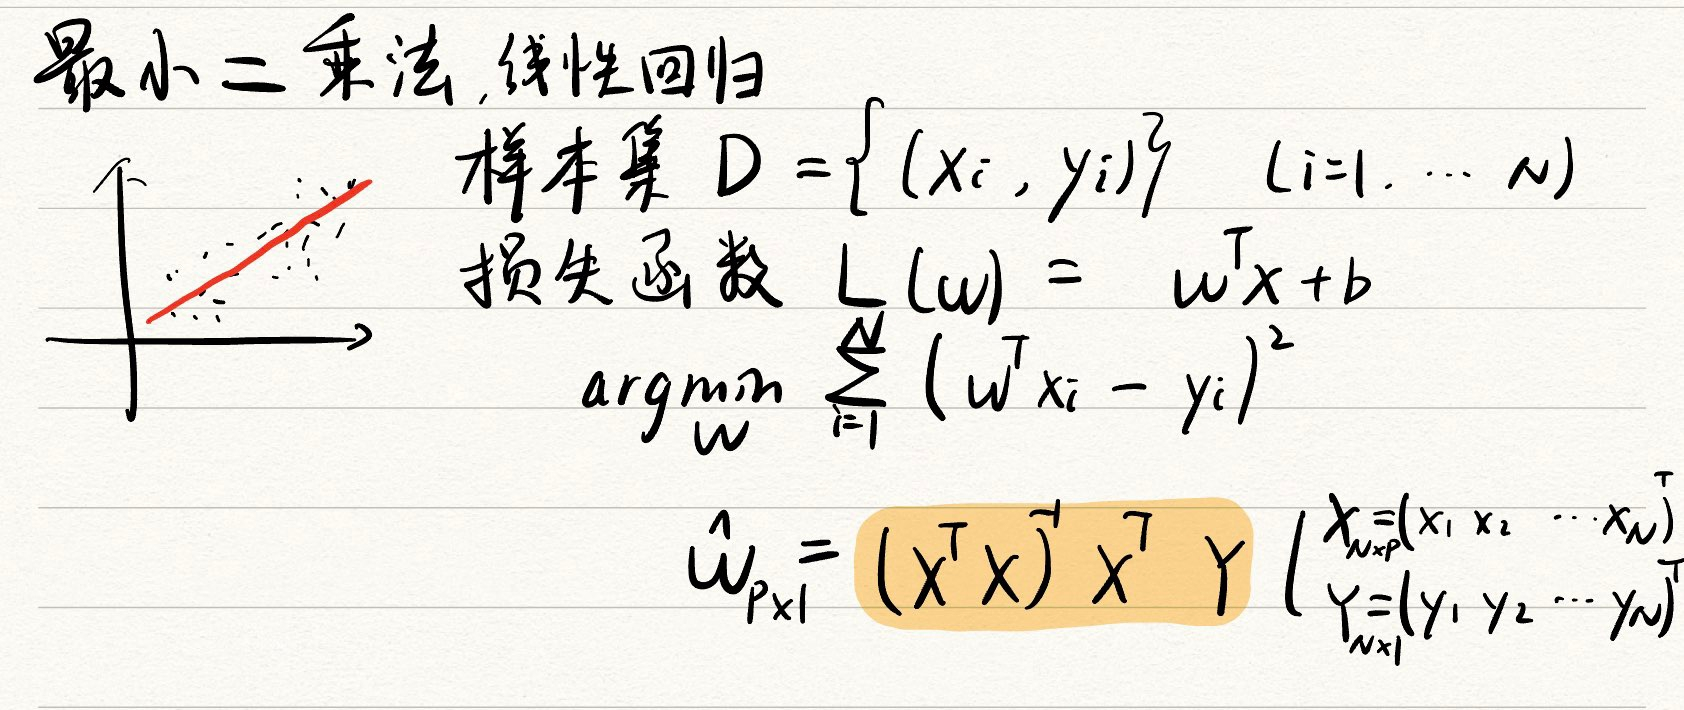 最小二乘法,线性回归
样本集 D = {(xi, yi)} (i=1. … N)
损失函数 L(w) = wᵀx+b
argmin_w Σ_{i=1}^{N} (wᵀxi - yi)²
ŵ_{p×1} = (XᵀX)⁻¹ Xᵀ Y
X_{N×P} = (x₁ x₂ … x_N)ᵀ
Y_{N×1} = (y₁ y₂ … y_N)ᵀ